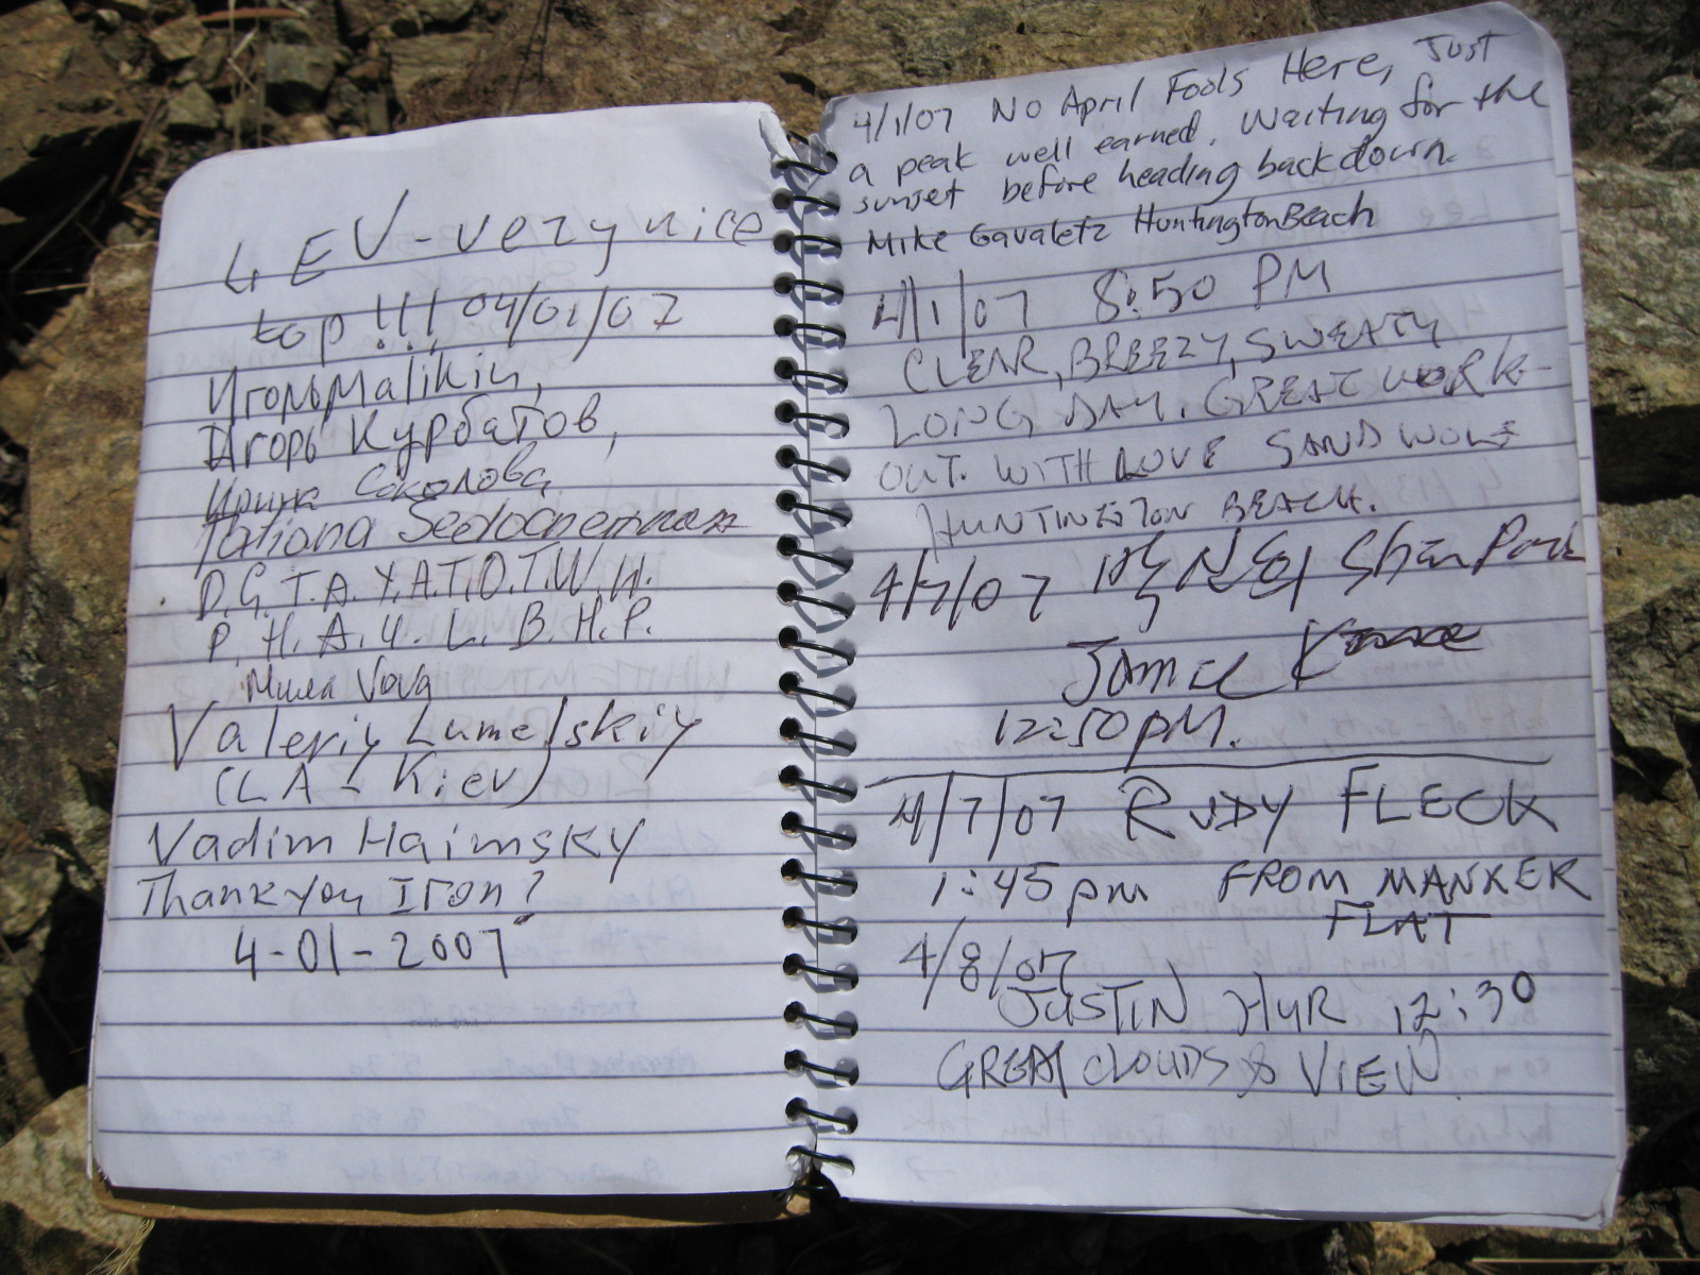 4 EV-very nice
top !!! 04/01/07
Игорь Malikin,
Игорь Курбатов,
Ирина Соколова,
Tatiana
D.G.T.A.Y.A.T.O.T.W.H.
P.H.A.Y.L.B.H.P.
Миша Vova
Valeriy Lumelskiy
(LA - Kiev)
Vadim Haimsky
Thank you Iron?
4-01-2007
4/1/07 No April Fools Here, Just
a peak well earned. Waiting for the
sunset before heading back down.
Mike Gavaletz Huntington Beach
4/1/07 8:50 PM
CLEAR, BREEZY, SWEATY
LONG DAY. GREAT WORK-
OUT. WITH LOVE SAND WOLF
HUNTINGTON BEACH.
4/7/07 박신희 Shin Park
Jamie
12:50 pM.
4/7/07 RUDY FLECK
1:45 pm FROM MANKER
FLAT
4/8/07
JUSTIN HYR 12:30
GREAT CLOUDS & VIEW.